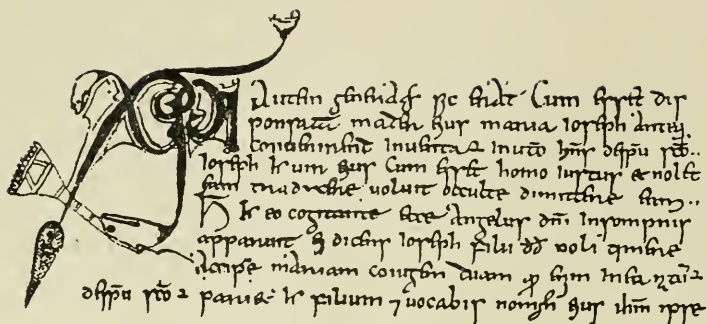 Autem generatio sic erat Cum esset dis
ponsata mater eius maria Ioseph Anteq̄
conuenirent Inuenta Inuto hn̄s desp̄u sc̄o..
Ioseph eius Cum esset homo iustus et nollet
eam traducere uoluit occulte dimittere eam..
eo cogitante ecce Angelus dn̄i Insompnis
apparuit ei dicens Ioseph filii dd noli timere
Accipe mariam coniugem tuam enim Inea
desp̄u sc̄o pariet filium ⁊ uocabis nomen eius ih̄m ipse